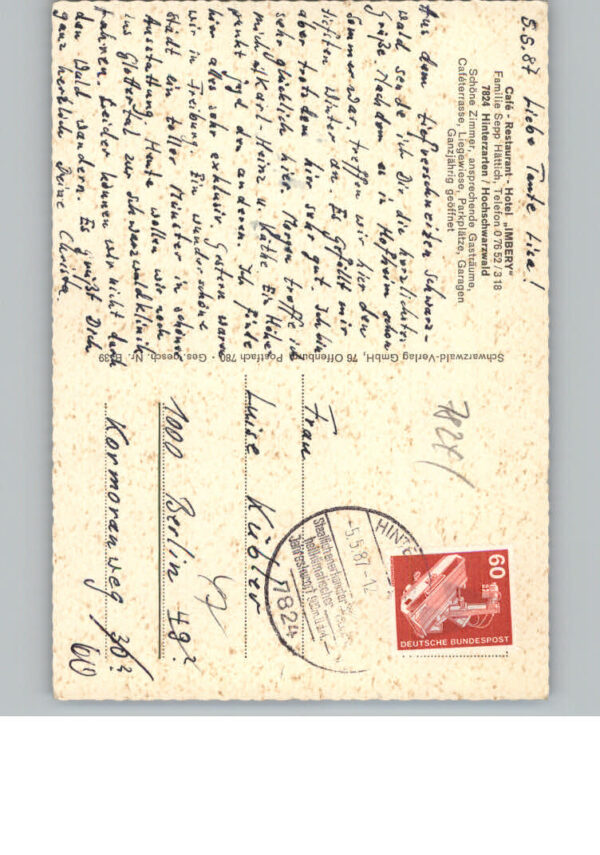 Café - Restaurant - Hotel „IMBERY“
Familie Sepp Hättich, Telefon 0 76 52 / 3 18
7824 Hinterzarten / Hochschwarzwald
Schöne Zimmer, ansprechende Gasträume,
Caféterrasse, Liegewiese, Parkplätze, Garagen
Ganzjährig geöffnet
5.5.87 Liebe Tante Lisa!
Aus dem tiefverschneiten Schwarz-
wald sende ich Dir die herzlichsten
Grüße. Nachdem es in Hofheim schon
Sommer war, treffen wir hier den
tiefsten Winter an. Es gefällt mir
aber trotzdem hier sehr gut. Ich bin
sehr glücklich hier. Morgen treffe ich
mich mit Karl-Heinz u. Käthe. Ein Höhe-
punkt jagd den anderen. Ich finde
hier alles sehr exklusiv. Gestern waren
wir in Freiburg. Ein wunderschöne
Stadt ein toller Münster in schöner
Ausstattung. Heute wollen wir noch
ins Glottertal zur Schwarzwaldklinik
fahren. Leider können wir nicht durch
den Wald wandern. Es grüßt Dich
ganz herzlich Deine Christa
Schwarzwald-Verlag GmbH, 76 Offenburg, Postfach 780 · Ges. gesch. Nr. B 39
7824
Frau
Luise Kübler
1000 Berlin 48?
47
Kormoranweg 30?
60
HINTE
-5.5.87-12
Staatlich anerkannter
heilklimatischer
7824
60
DEUTSCHE BUNDESPOST